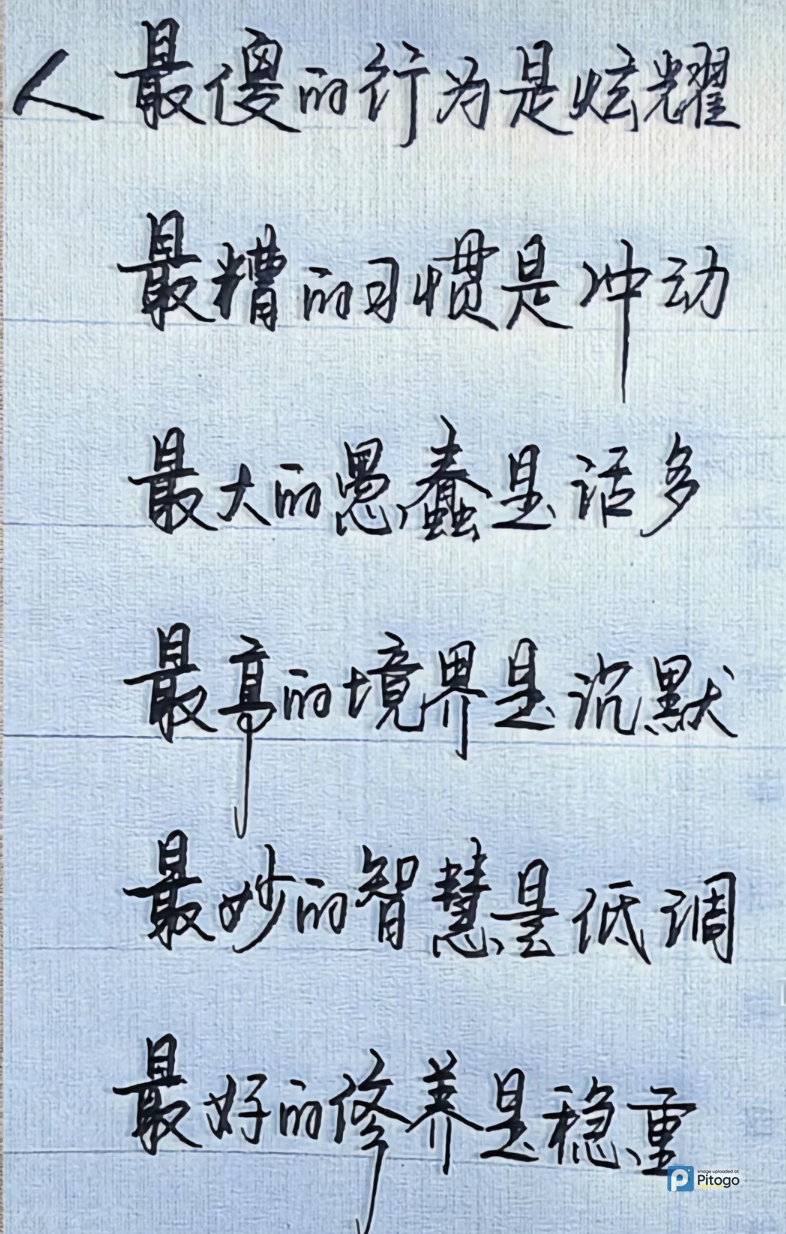 人最傻的行为是炫耀
最糟的习惯是冲动
最大的愚蠢是话多
最高的境界是沉默
最妙的智慧是低调
最好的修养是稳重
Image uploaded at
Pitogo